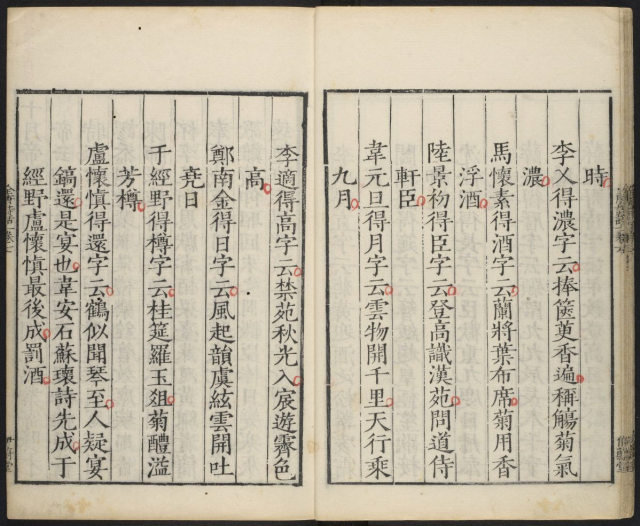 時
李乂得濃字云捧篋萸香遍稱觴菊氣
濃
馬懷素得酒字云蘭將葉布席菊用香
浮酒
陸景初得臣字云登高識漢苑問道侍
軒臣
韋元旦得月字云雲物開千里天行乘
九月
李適得高字云禁苑秋光入宸遊霽色
高
鄭南金得日字云風起韻虞絃雲開吐
堯日
于經野得樽字云桂筵羅玉俎菊醴溢
芳樽
盧懷慎得還字云鶴似聞琴至人疑宴
鎬還是宴也韋安石蘇瓌詩先成于
經野盧懷慎最後成罰酒